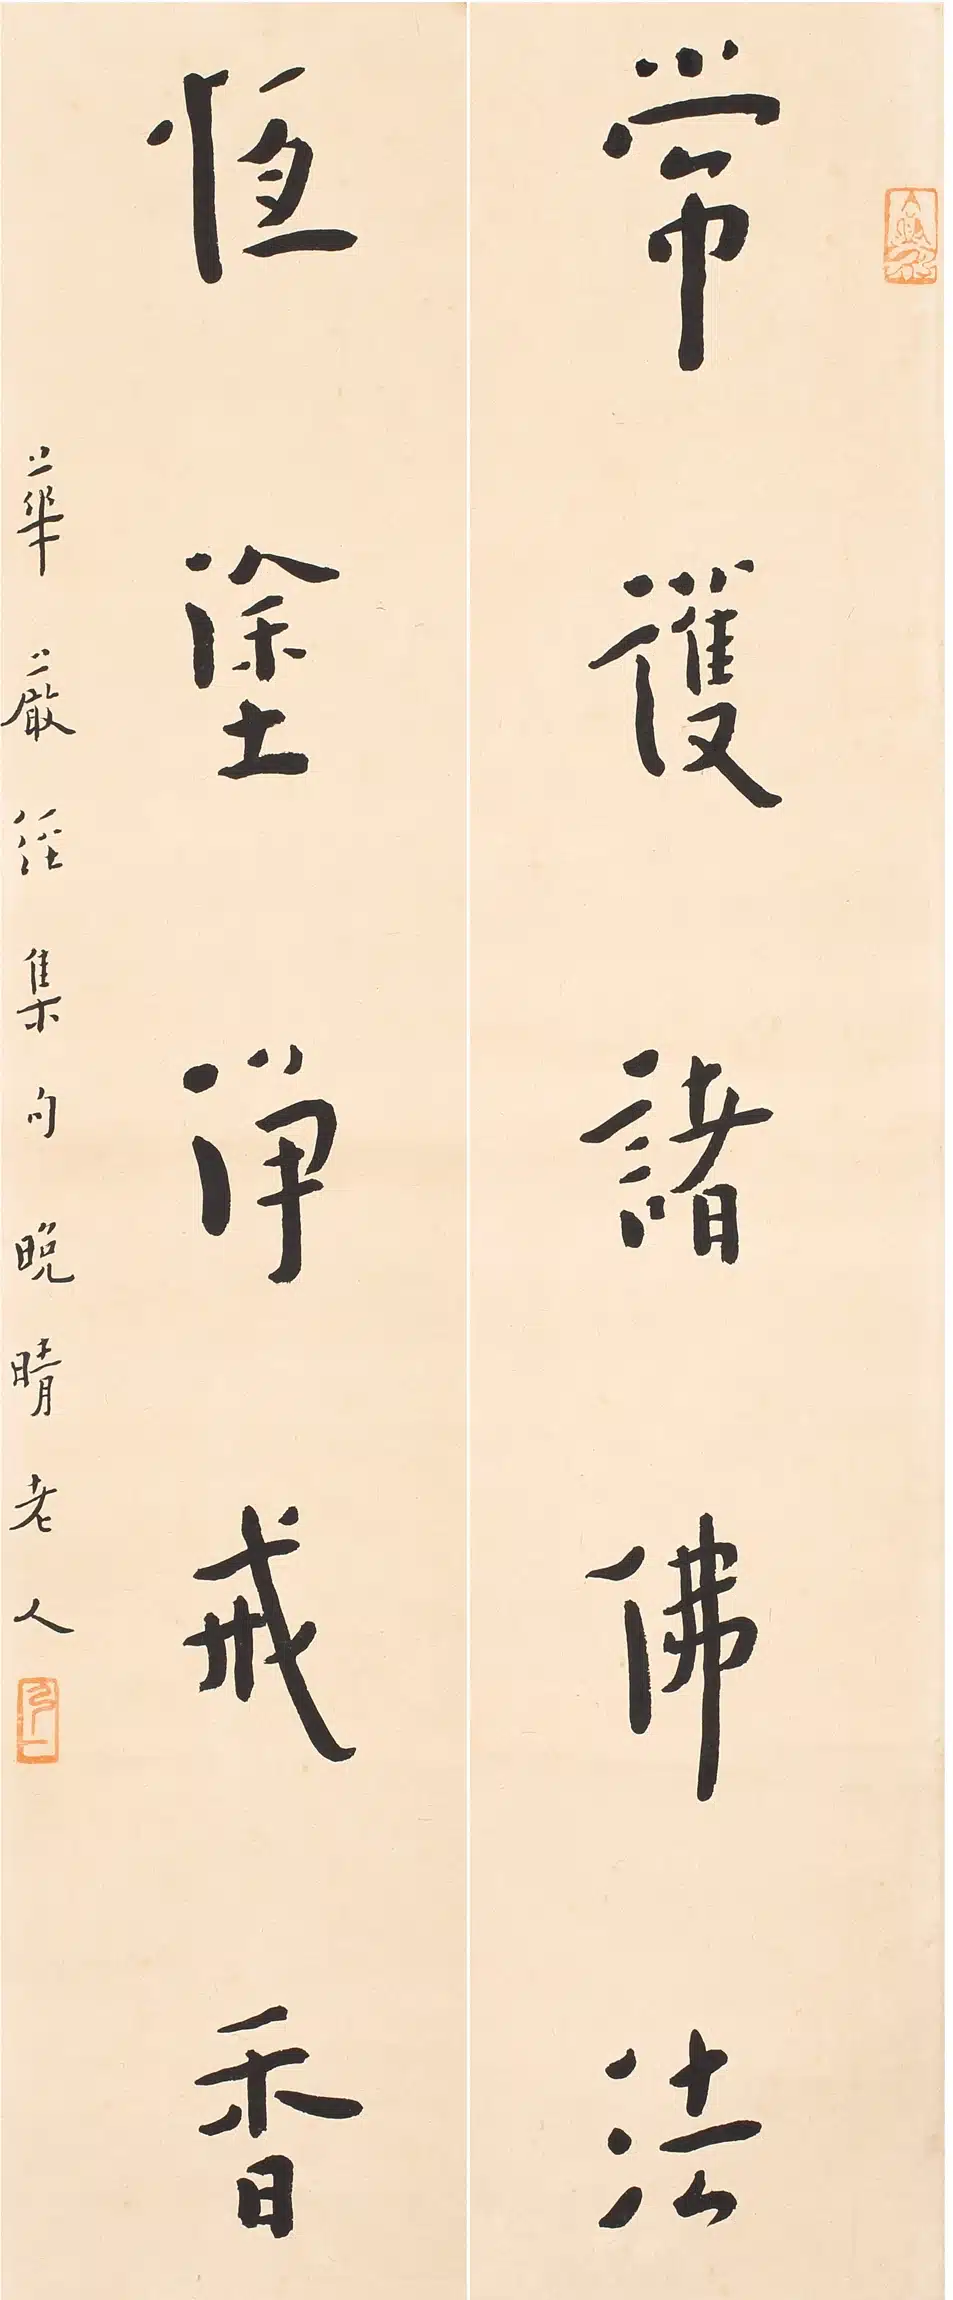 常護諸佛法
恆塗淨戒香
華嚴經集句晚晴老人